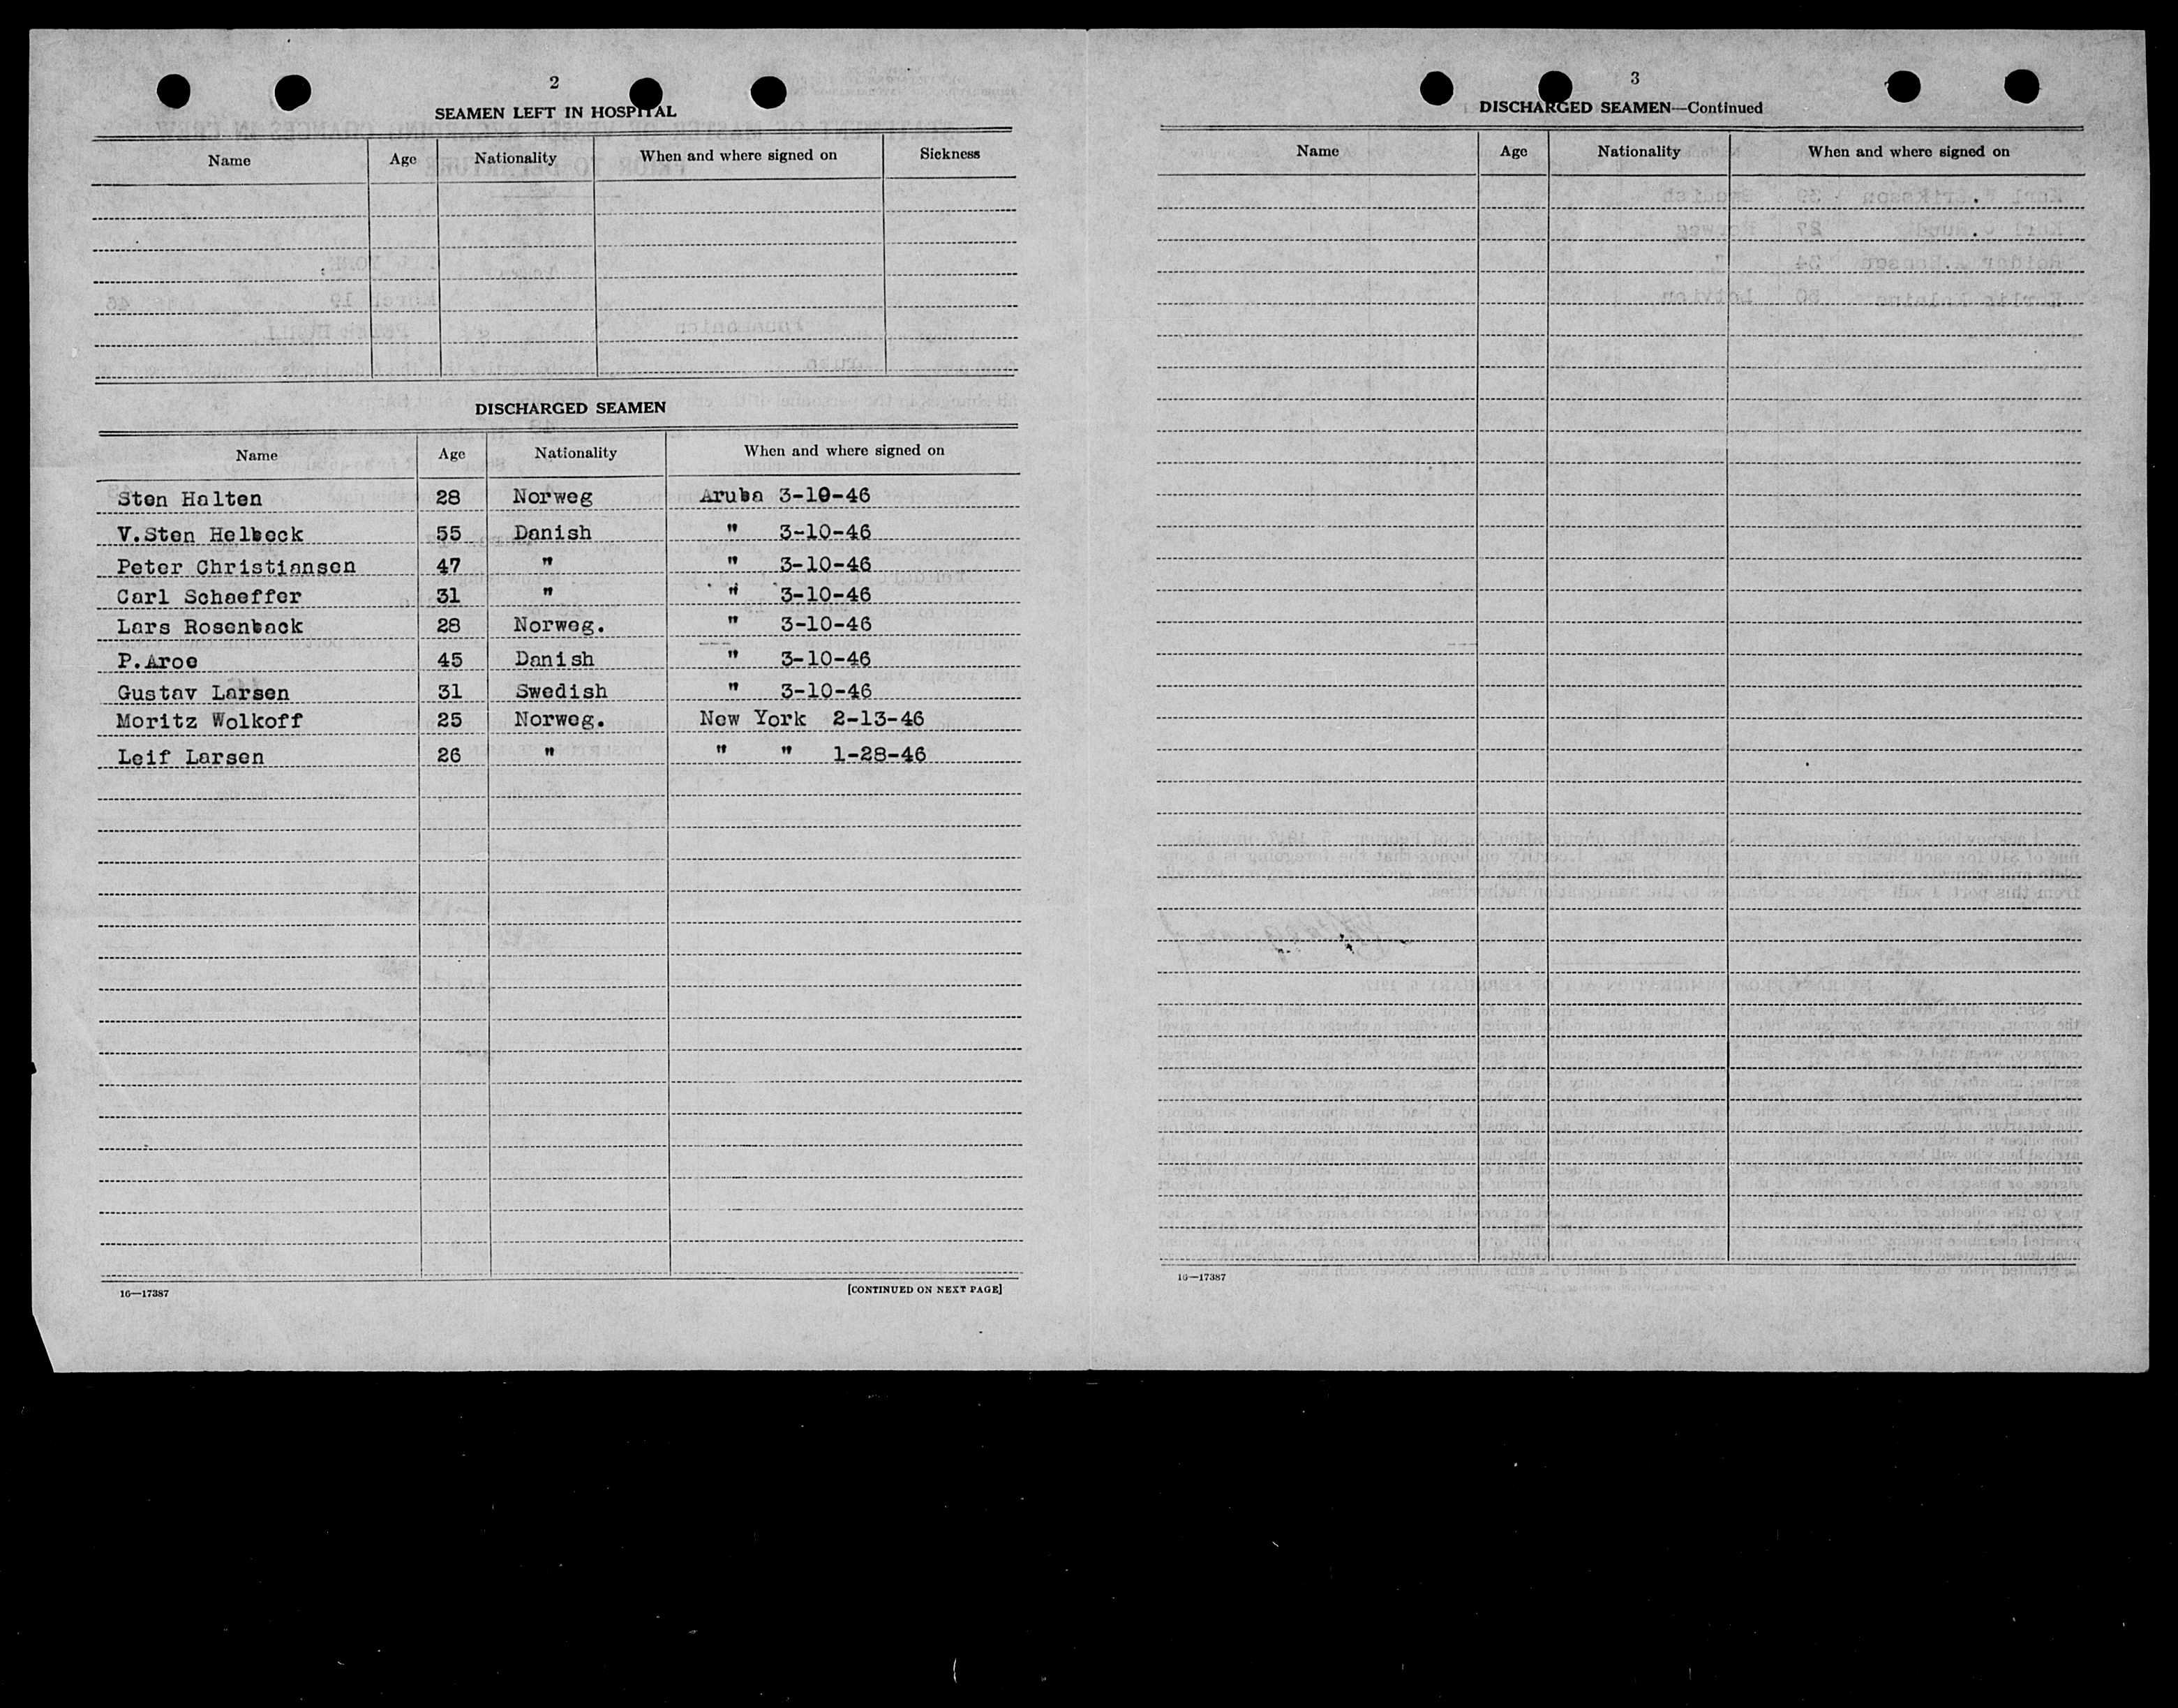 2
SEAMEN LEFT IN HOSPITAL
Name Age Nationality When and where signed on Sickness
DISCHARGED SEAMEN
Name Age Nationality When and where signed on
Sten Halten 28 Norweg Aruba 3-10-46
V.Sten Helbeck 55 Danish " 3-10-46
Peter Christiansen 47 " " 3-10-46
Carl Schaeffer 31 " " 3-10-46
Lars Rosenback 28 Norweg. " 3-10-46
P.Aroe 45 Danish " 3-10-46
Gustav Larsen 31 Swedish " 3-10-46
Moritz Wolkoff 25 Norweg. New York 2-13-46
Leif Larsen 26 " " " 1-28-46
16—17387
[CONTINUED ON NEXT PAGE]
3
DISCHARGED SEAMEN—Continued
Name Age Nationality When and where signed on
16—17387